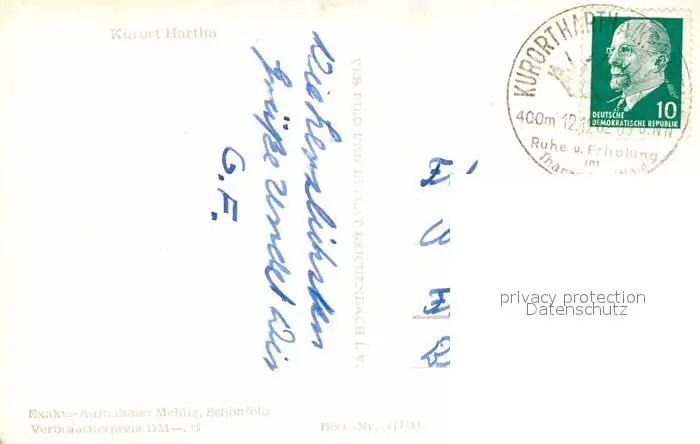 Kurort Hartha
Die herzlichsten
Grüße sendet Dir
G.F.
VEB BILD UND HEIMAT REICHENBACH I. V.
KURORT HARTHA
400m 12.12.62
Ruhe u. Erholung
im
10
DEUTSCHE
DEMOKRATISCHE REPUBLIK
privacy protection
Datenschutz
Exakta-Aufnahme: Mehlig, Schönfeld
Verbraucherpreis DM —,15
Best.-Nr.